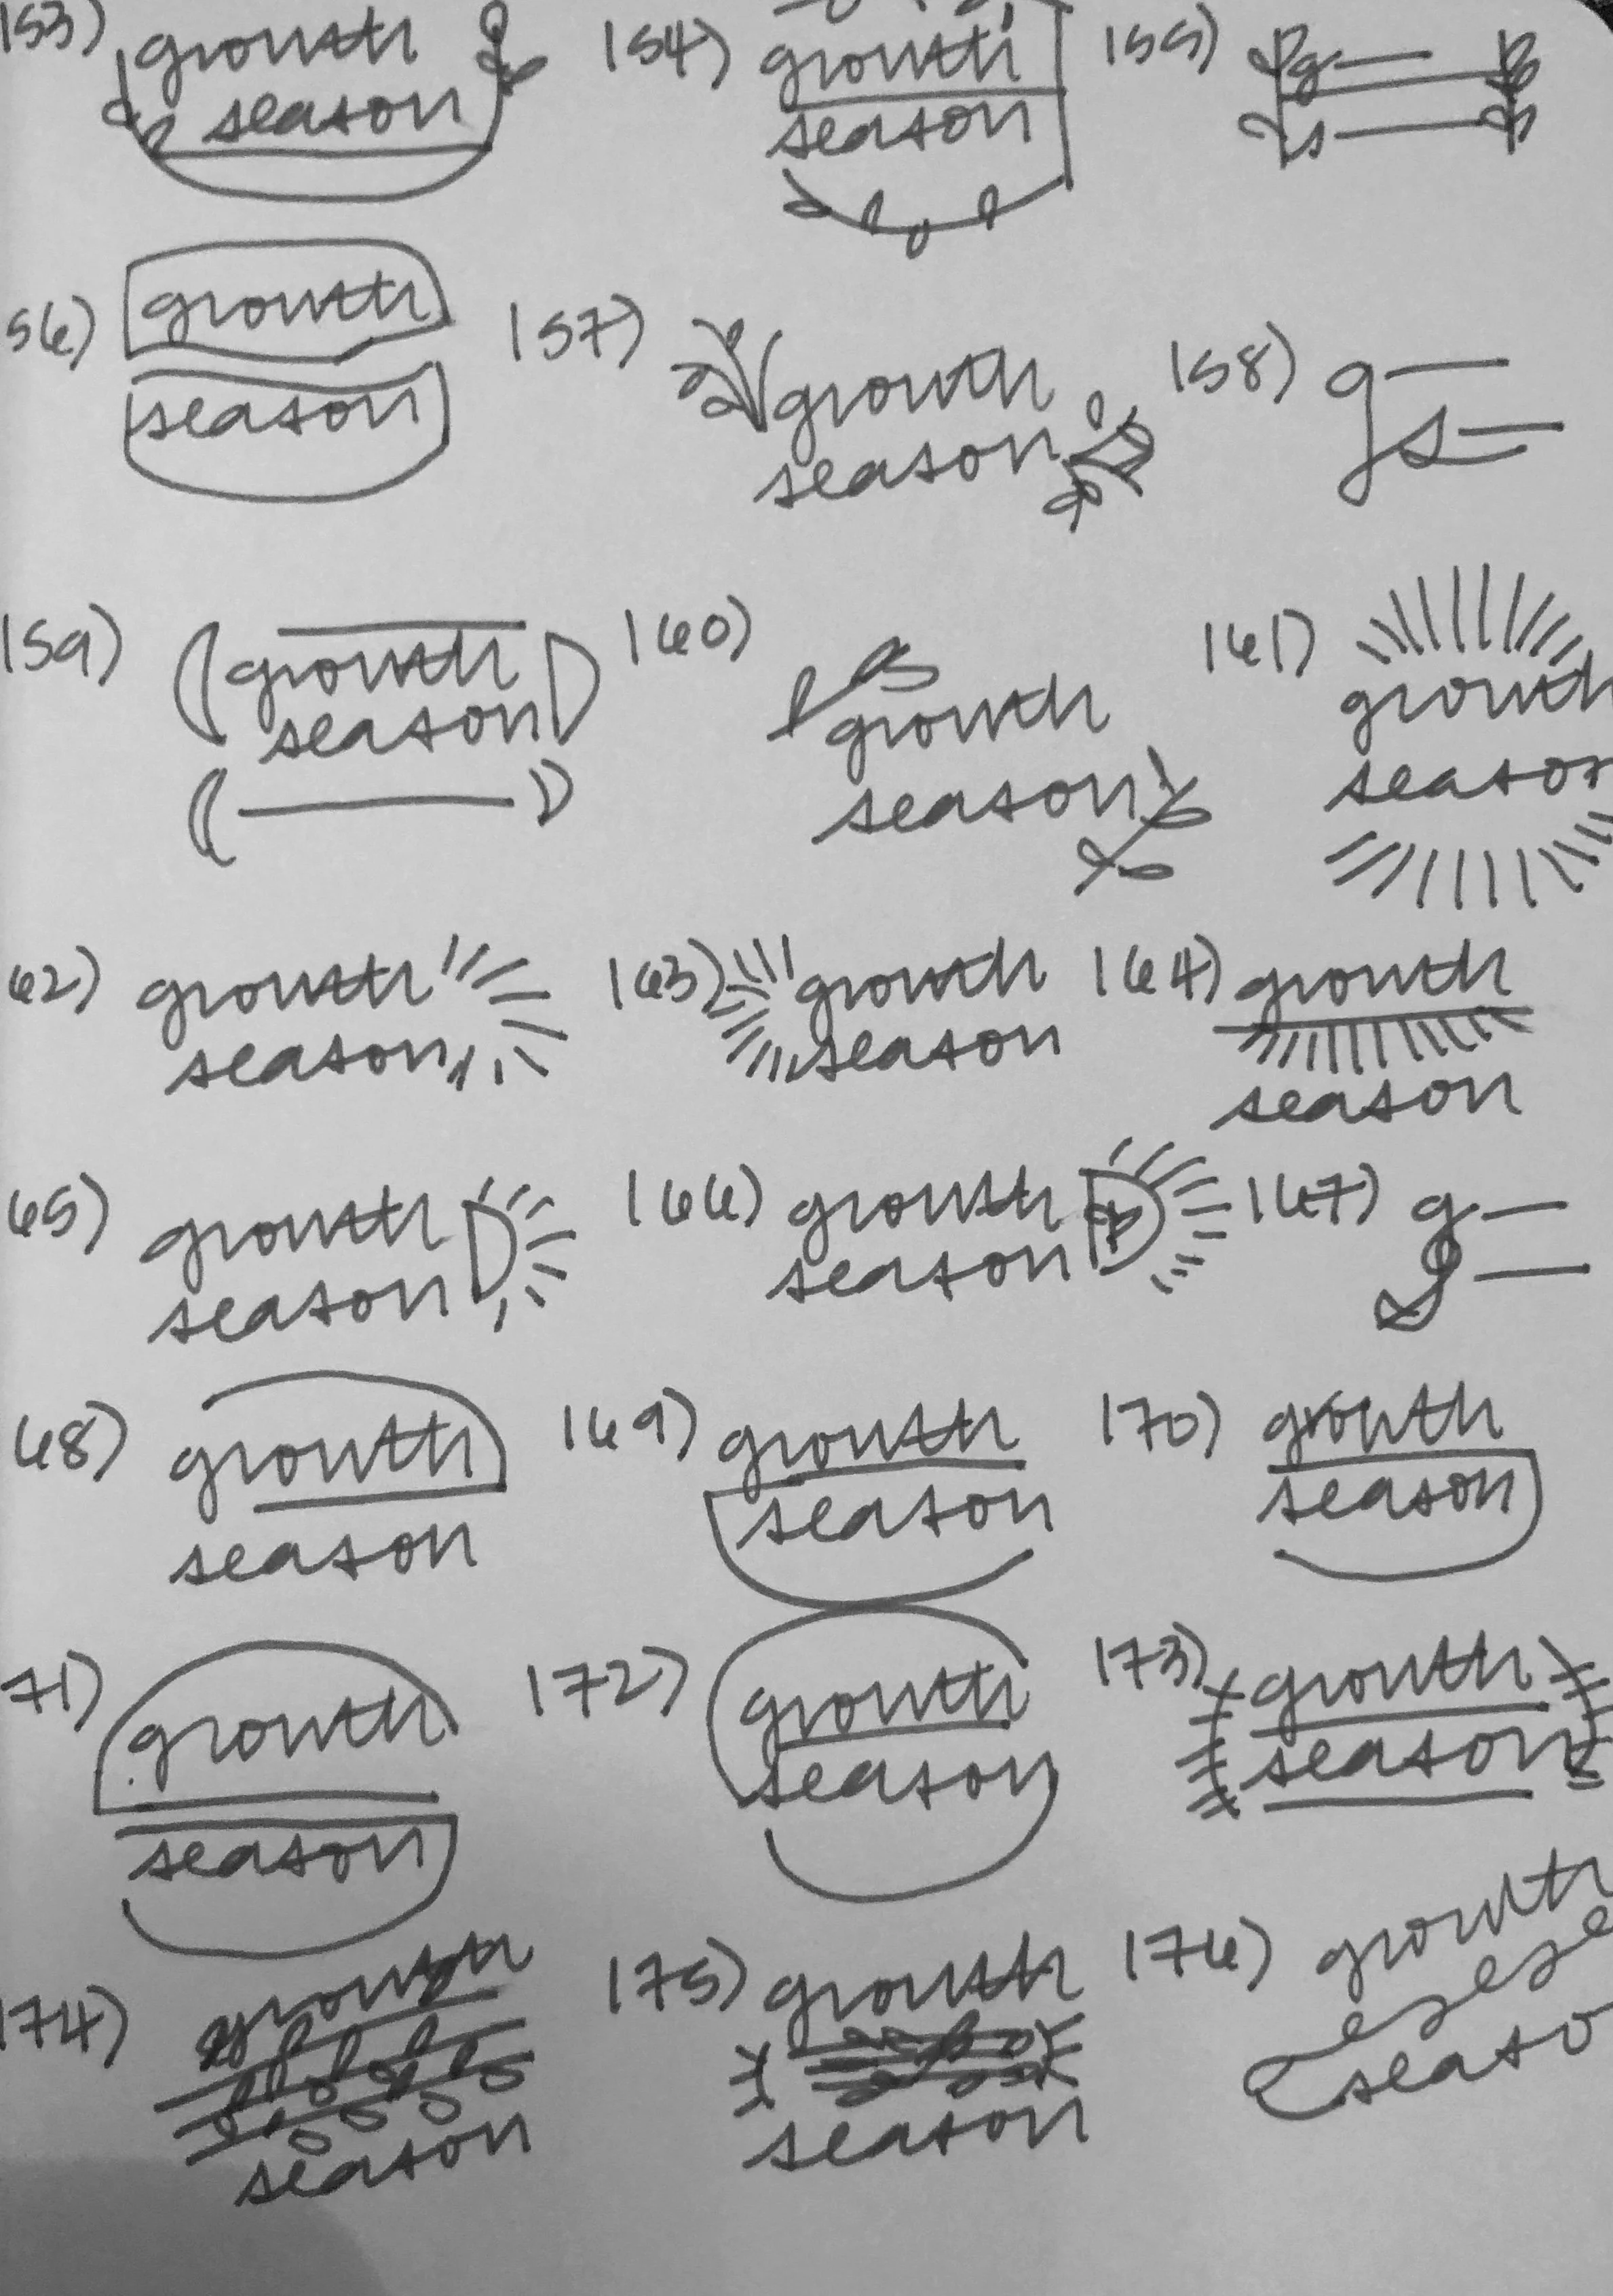 153) growth
season
154) growth
season
155) g
s
56) growth
season
157) growth
season
158) g
s
159) growth
season
160) growth
season
161) growth
season
62) growth
season
163) growth
season
164) growth
season
65) growth
season
166) growth
season
167) g
s
68) growth
season
169) growth
season
170) growth
season
71) growth
season
172) growth
season
173) growth
season
174) growth
season
175) growth
season
176) growth
seaso